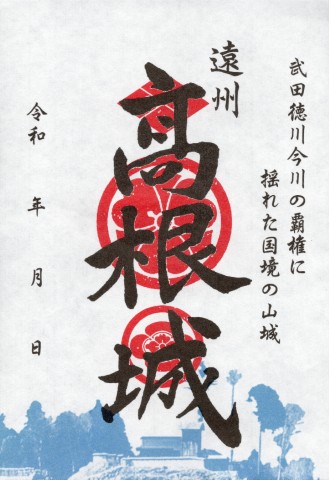 武田徳川今川の覇権に
揺れた国境の山城
遠州
高根城
令和　年　月　日